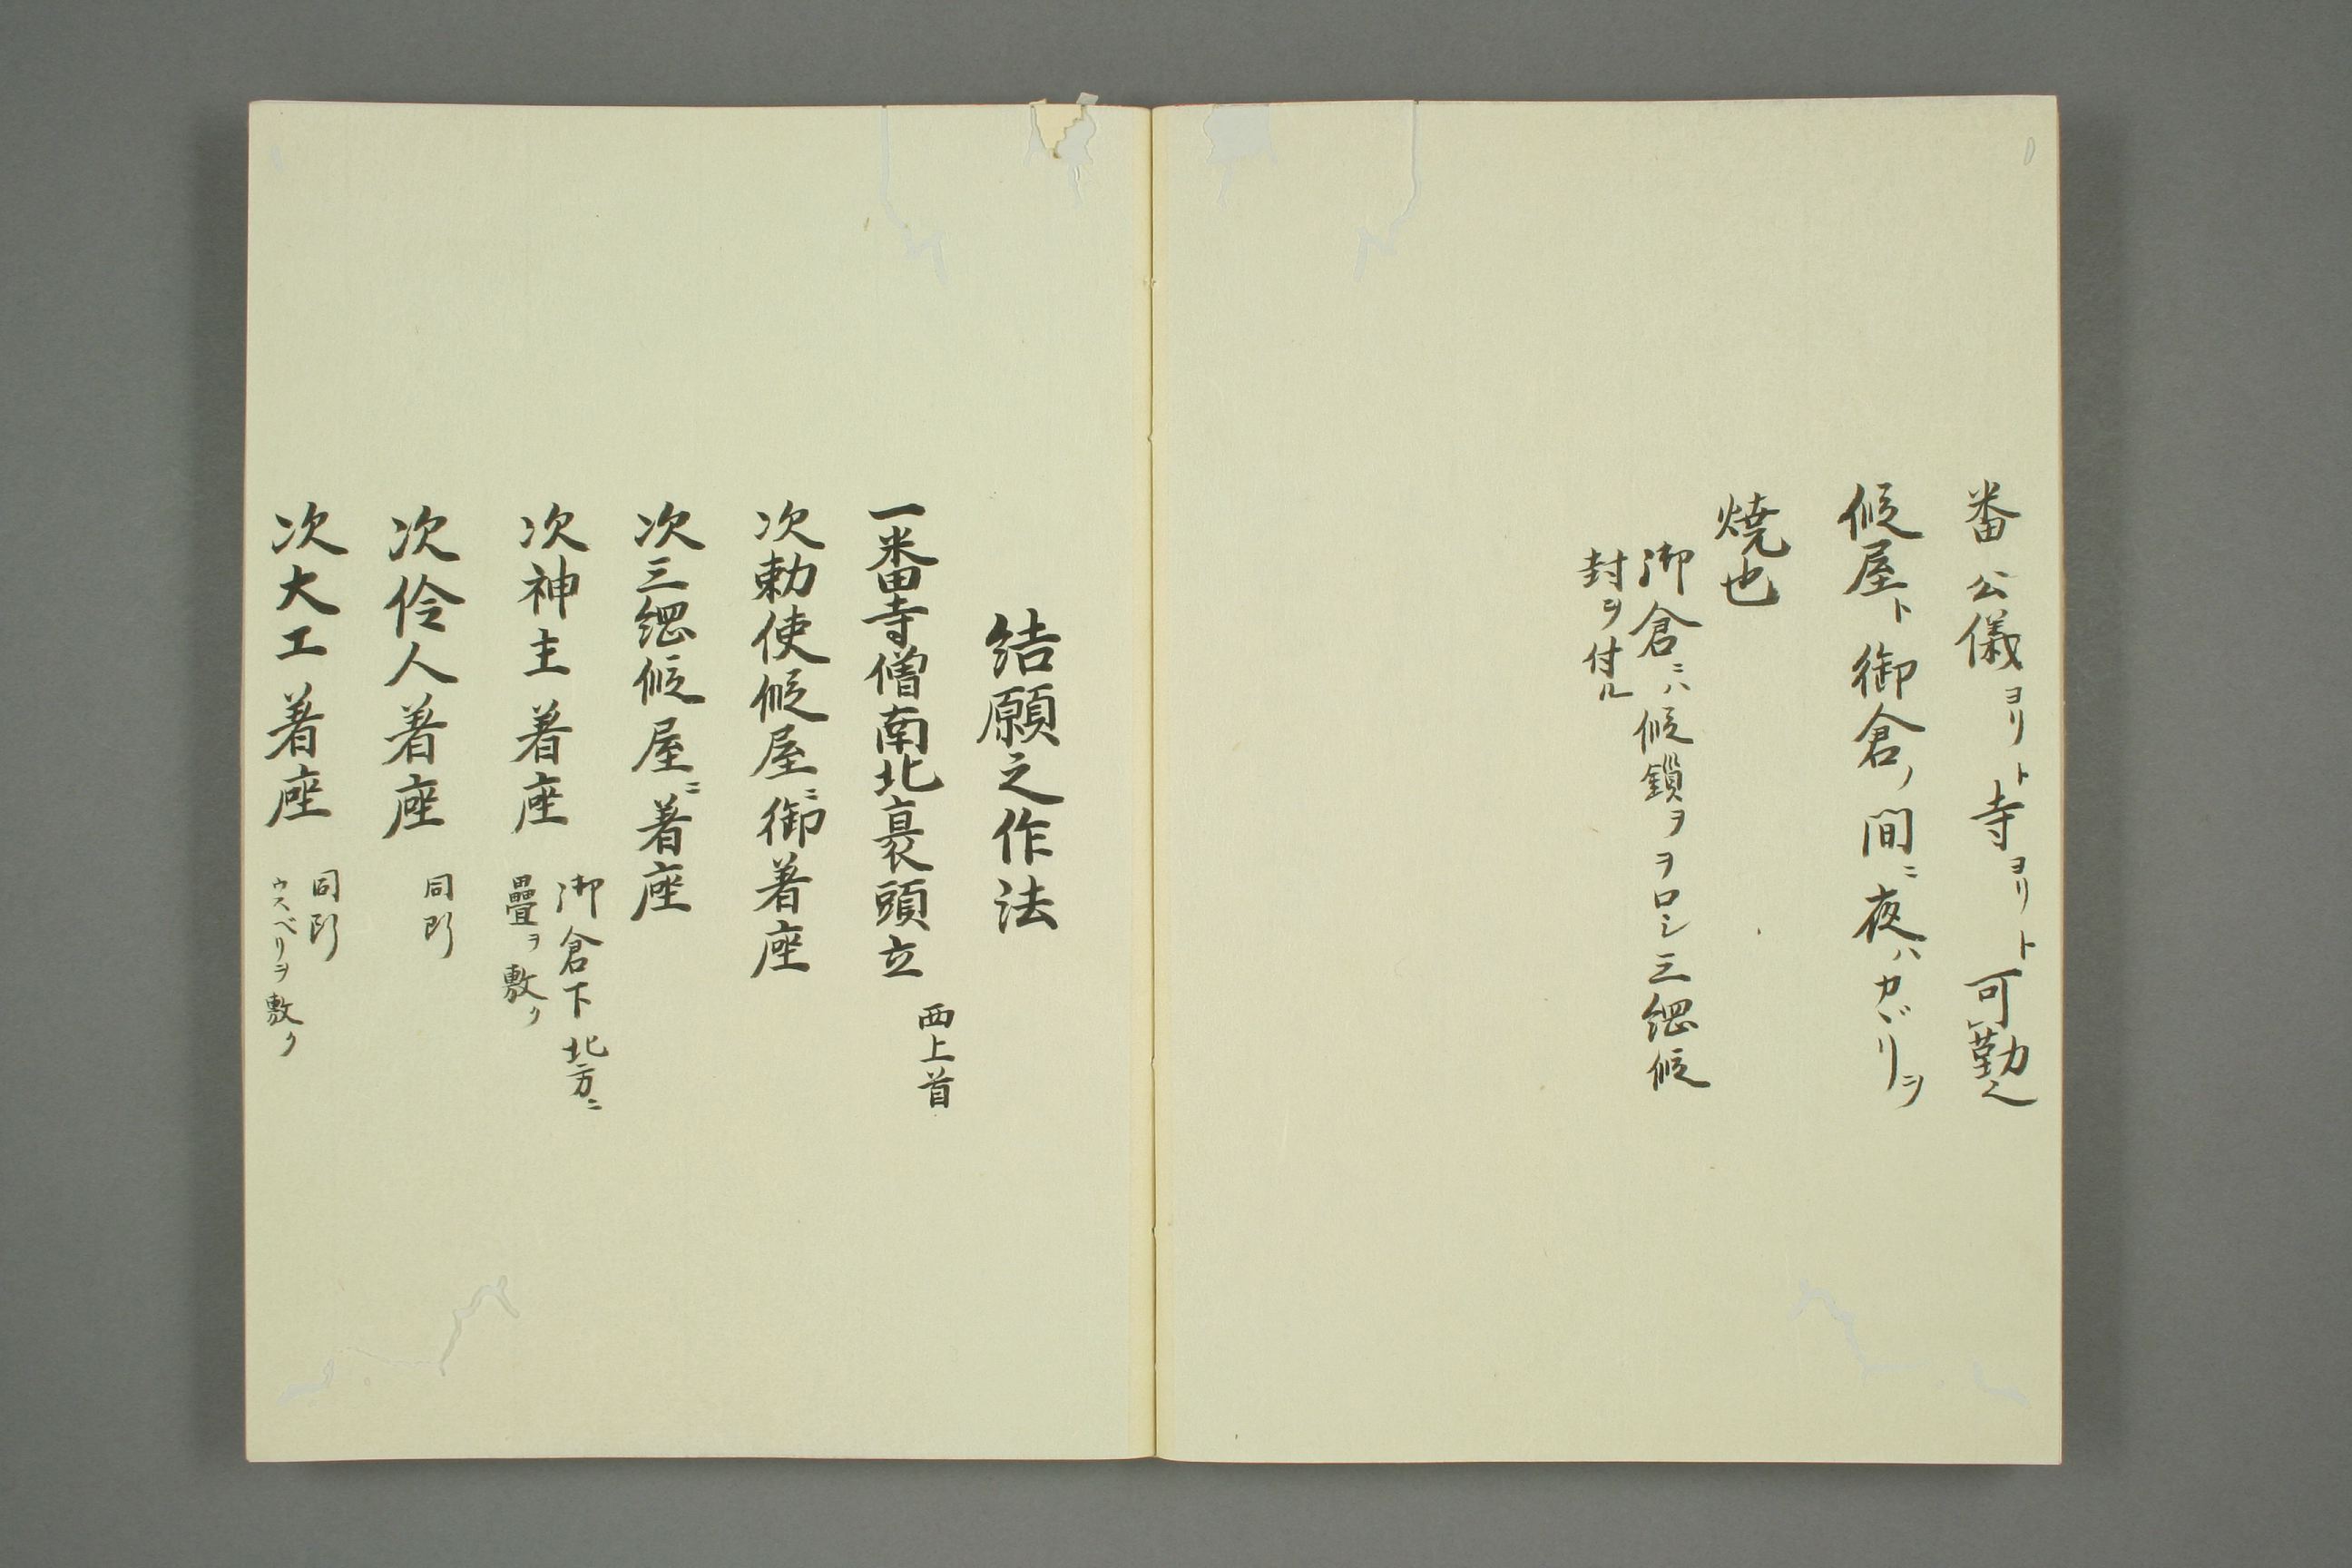 番公儀ヨリト寺ヨリト可勤ヘ
仮屋ト御倉ノ間ニ夜ハカヾリヲ
焼也
御倉ニハ仮鎖ヲヲロシ三綱仮
封ヲ付ル
結願之作法
一番寺僧南北裹頭立 西上首
次勅使仮屋ニ御着座
次三綱仮屋ニ着座
次神主着座 御倉下北方ニ
畳ヲ敷ク
次伶人着座 同断
次大工着座 同断
ウスベリヲ敷ク